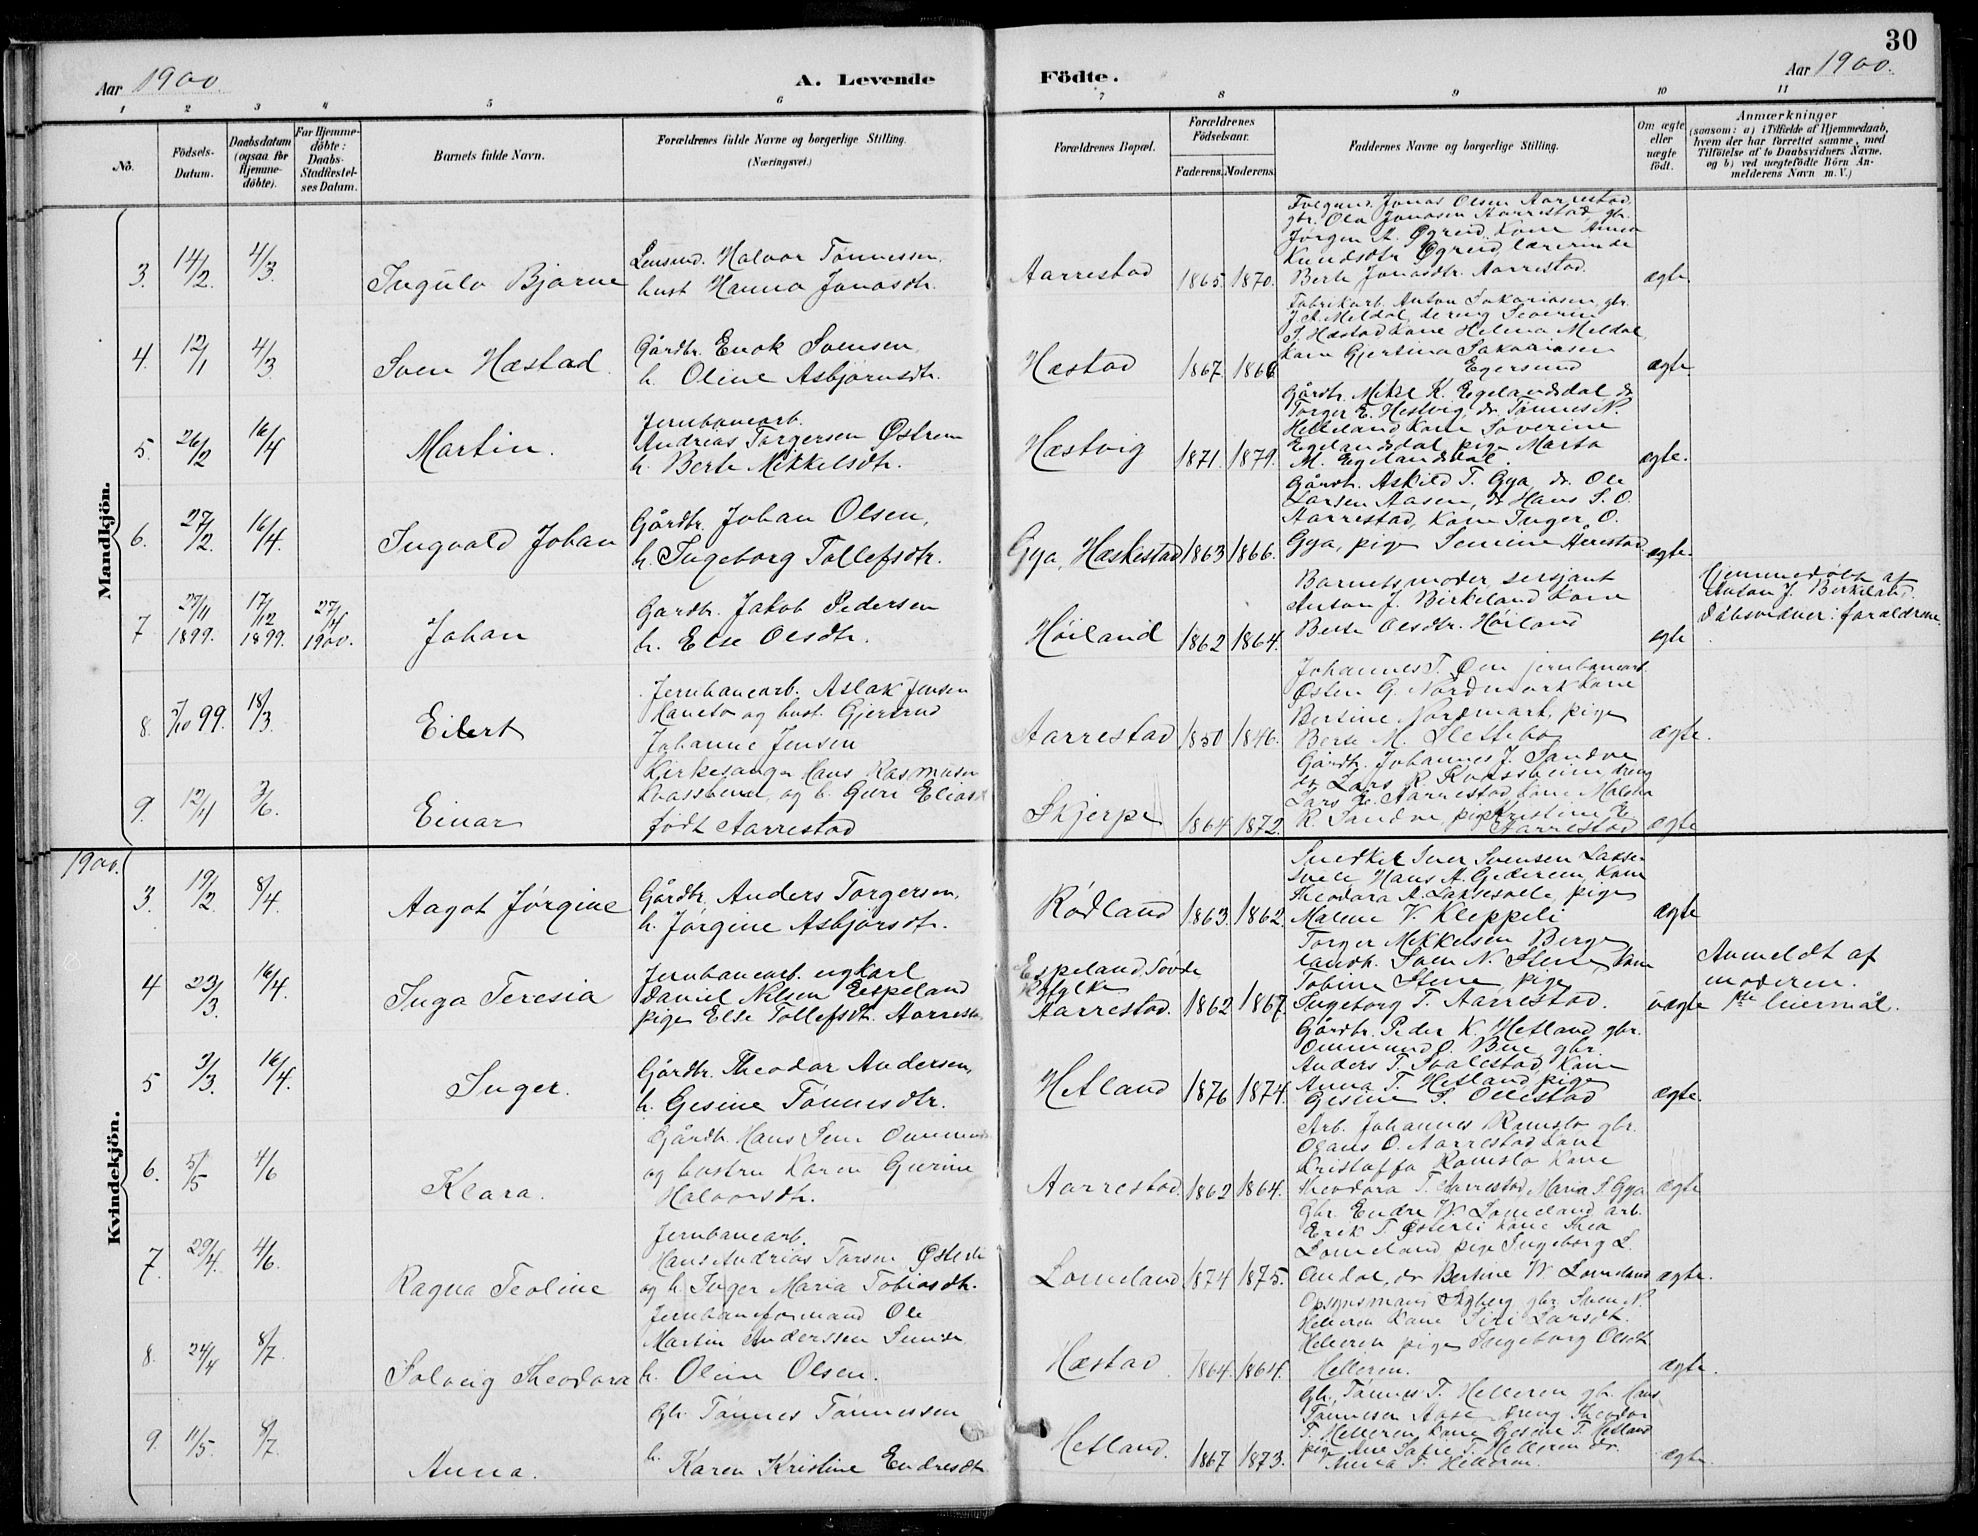 30
Aar 1900.
A. Levende
Födte.
Aar 1900.
1 2 3 4 5 6 7 8 9 10 11
No.
Födsels-
Datum.
Daabsdatum
(ogsaa for
Hjemme-
döbte).
Far Hjemme-
döbte:
Daabs-
Stadfæstel-
ses Datum.
Barnets fulde Navn.
Forældrenes fulde Navne og borgerlige Stilling.
(Næringsvei.)
Forældrenes Bopæl.
Forældrenes
Födselsaar.
Faderens.
Moderens.
Faddernes Navne og borgerlige Stilling.
Om ægte
eller
uægte
födt.
Anmærkninger
(saasom: a) i Tilfælde af Hjemmedaab,
hvem der har forrettet samme, med
Tilföielse af to Daabsvidners Navne.
og b) ved uægtefödte Börn An-
melderens Navn m. V.)
Mandkjön.
3. 14/2. 4/3.
Ingulv Bjarne
Lensmd. Halvor Tønnesen,
hust Hanna Jonasdtr.
Aarrestad 1865. 1870.
Jonas Olsen Aarrestad
gbr. Ola Jonasen Aarrestad, gbr.
Jørgen A. Øgreid, Kone Anna
Knudsdtr Øgreid, lærerinde
Berte Jonasdtr. Aarrestad.
ægte
4. 12/1 4/3.
Sven Hæstad.
Gårdbr. Enok Svensen,
h. Oline Asbjørnsdtr.
Hæstad 1867. 1866
Fabrikarb. Anton Sakariasen, gbr.
J. A. Meldal, dreng Severin
S. Hæstad Kone Helena Meldal,
Kone Gjertina Sakariasen
Egersund
ægte.
5. 26/2 16/4
Martin.
Jernbanearb.
Andreas Torgersen Østrem
h. Berte Mikkelsdtr.
Hæstvig 1871. 1879.
Gårdbr. Mikal K. Egelandsdal do
Torger E. Hestvig, do. Tønnes N.
Helleland Kone Soverine
Egelandsdal pige Marta
M. Egelandsdal.
ægte.
6. 27/2. 16/4.
Ingvald Johan
Gårdbr. Johan Olsen,
h. Ingeborg Tollefsdtr.
Gya, Hæskestad 1863 1866.
Gårdbr. Askild T. Gya, do. Ole
Larsen Aasen, do Hans S. O.
Aarrestad, Kone Inger O.
Gya, pige Semine Aarrestad
ægte.
7 27/11 1899. 17/12 1899. 27/4 1900.
Johan
Gardbr. Jakob Pedersen
h. Else Olsdtr.
Høiland 1862 1864.
Barnets moder, sersjant
Anton J. Birkeland Kone
Berte Olsdtr. Høiland
egte
Hjemmedøbt af
Anton J. Birkeland.
Dåbsvidner: forældrene.
8. 5/10 99. 18/3.
Eilert
Jernbanearb. Aslak Jensen
Haneto og hust. Gjertrud
Johanne Jensen
Aarrestad 1850 1846.
Johannes T. Øen jernbanearb
Østen G. Nordmark Kone
Bertine Nordmark, pige
Berte M. Slettebø
ægte.
9. 12/4 3/6.
Einar
Kirkesanger Hans Rasmusen
Kvassheim, og h. Guri Eliasd
født Aarrestad
Skjerpe 1864 1872.
Gårdbr. Johannes J. Sandve
do Lars R. Kvassheim dreng
Lars E. Aarrestad Kone Malena
R. Sandve, pige Kristine E
Aarrestad
ægte
Kvindekjön.
1900.
3. 19/2. 8/4.
Aagot Jørgine
Gårdbr. Anders Torgersen,
h. Jørgine Asbjørsdtr.
Rødland 1863. 1862.
Snedker Iver Svensen Lakse-
svele Hans A. Gederem, Kone
Theodora A. Laksesvele, pige
Malene V. Kleppeli
ægte
4 23/3. 16/4.
Inga Teresia
Jernbanearb. ugkarl
Daniel Nilsen Espeland
pige Else Tollefsdtr. Aarrestad
Espeland, Søvde
Hylke
Aarrestad. 1862 1867.
Torger Mikkelsen Berge
landh. Sven N. Stene, Kone
Tobine Stene pige
Ingeborg T. Aarrestad.
uægte
Anmeldt af
moderen.
1ste leiermål.
5 3/3. 16/4.
Inger.
Gårdbr. Theodor Andersen,
h. Gesine Tønnesdtr.
Hetland 1876 1874.
Gårdbr. Peder K. Hetland gbr.
Ommund O. Bue, gbr.
Anders T. Svalestad, Kone
Anna T. Hetland pige
Gesine S. Ollestad
ægte.
6. 5/5 4/6
Klara.
Gårdbr. Hans Sem Ommunds
og hustru Karen Gurine
Halvorsdtr.
Aarrestad. 1862 1864.
Arb. Johannes Ramslo gbr.
Olaus O. Aarrestad Kone
Kristoffa Ramslo Kone
Theodora T. Aarrestad, Maria T. Gya
ægte
7. 29/4. 4/6.
Ragna Teoline
Jernbanearb.
Hans Andreas Torsen Østerli
og h. Inger Maria Tobiasdtr.
Lomeland 1874 1875.
Gbr Endre W. Lomeland arb.
Erik T. Østerli Kone Thea
Lomeland pige Ingeborg L.
Andal, do Bertine W. Lomeland
ægte.
8. 24/4 8/7.
Solveig Theodora
Jernbaneformand Ole
Martin Anderssen Sunde
h. Oline Olsen.
Hæstad. 1864. 1864.
Opsynsmand Skyberg gbr Sven N.
Helleren Kone Siri Larsdt.
Helleren pige Ingeborg Olsdt
Helleren.
ægte.
9. 11/5. 8/7.
Anna.
Gbr. Tønnes Tønnessen
h. Karen Kristine Endresdtr
Hetland. 1867 1873.
Gbr. Tønnes T. Helleren gbr. Hans
Tønnesen Aase dreng Theodor
T. Helleren Kone Gesine T. Hetland
pige Ane Sofie T. Helleren do.
Anna T. Helleren.
ægte.